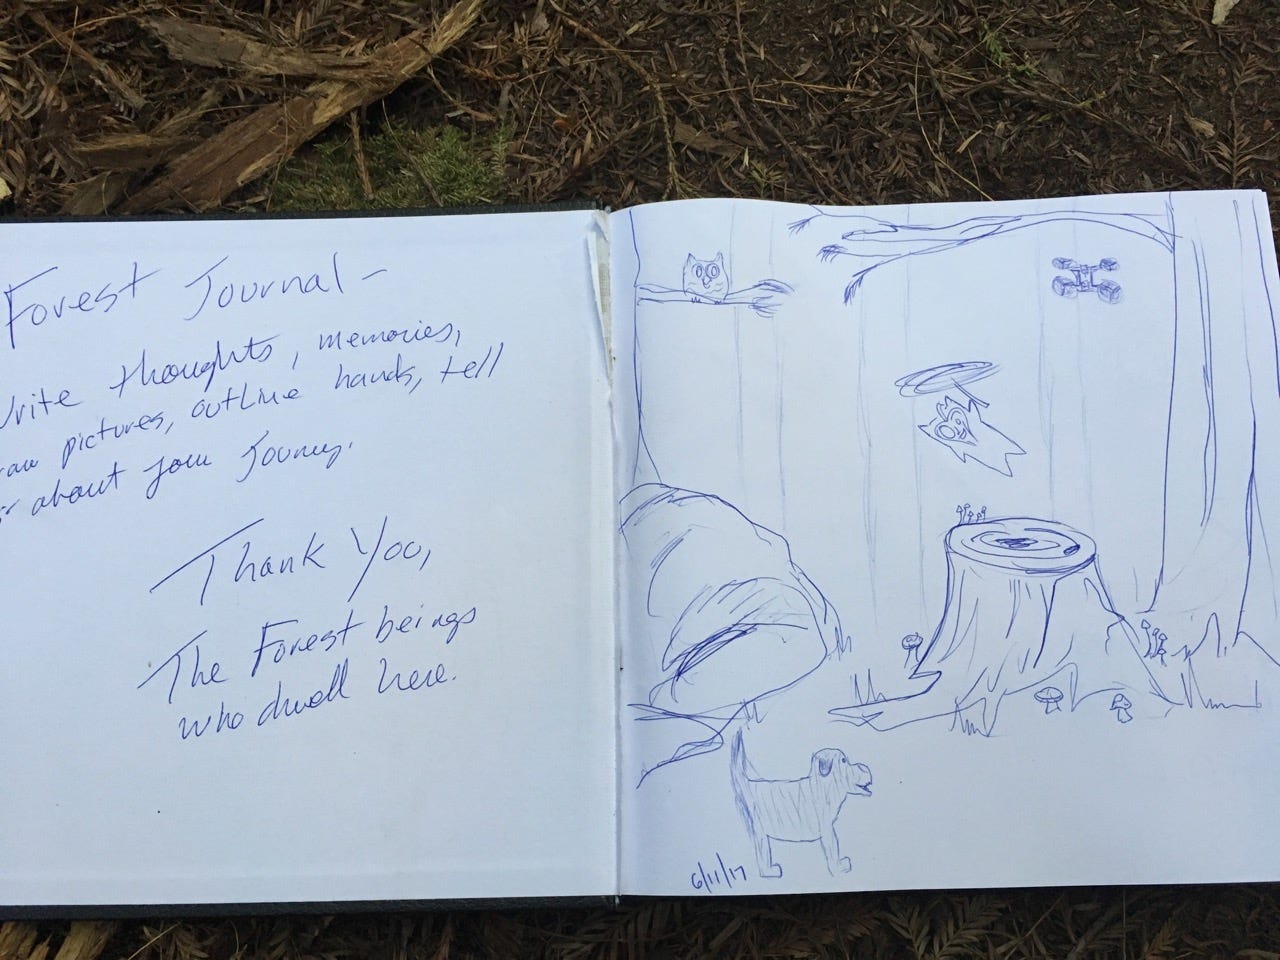 Forest Journal -
Write thoughts, memories,
raw pictures, outline hands, tell
about your Journey.
Thank You,
The Forest beings
who dwell here.
6/11/17